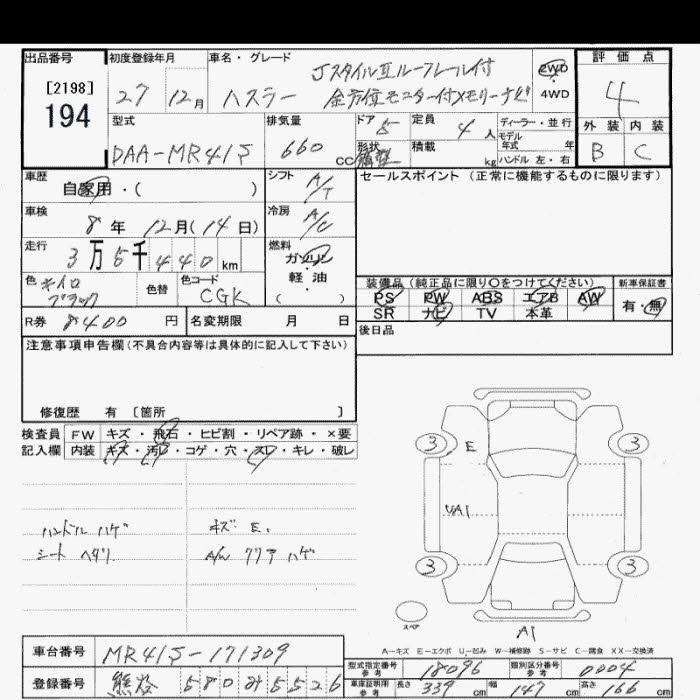 出品番号
[2198]
194
初度登録年月
27 12月
車名・グレード
JスタイルⅡルーフレール付
ハスラー 全方位モニター付メモリーナビ
2WD
4WD
評価点
4
外装 内装
B C
型式
DAA-MR41S
排気量
660 cc
ドア 5
形状
定員 4 人
積載 kg
ディーラー・並行
モデル
年式 年
ハンドル 左・右
車歴
自家用・( )
シフト A/T
セールスポイント (正常に機能するものに限ります)
車検
8年 12月(14日)
冷房 A/C
走行
3万5千440km
燃料
ガソリン
軽・油
( )
色 キイロ
ブラック
色替
色コード
CGK
装備品(純正品に限り○をつけてください)
新車保証書
PS PW ABS エアB AW
SR ナビ TV 本革
有・無
R券 8400 円
名変期限 月 日
後日品
注意事項申告欄(不具合内容等は具体的に記入して下さい)
修復歴 有 [箇所 ]
検査員 FW キズ・飛石・ヒビ割・リペア跡・×要
記入欄 内装 キズ・汚レ・コゲ・穴・スレ・キレ・破レ
ハンドル ハゲ
シート ヘタリ
キズ E.
A/W クリア ハゲ
3 3
E
UA1
3 3
スペア
A1
A―キズ E―エクボ U―凹み W―補修跡 S―サビ C―腐食 XX―交換済
車台番号 MR41S-171309
登録番号 熊谷 580 み 5526
型式指定番号
参考
18096
類別区分番号
参考
0004
車庫証明用
参考
長さ 339 cm 幅 147 cm 高さ 166 cm